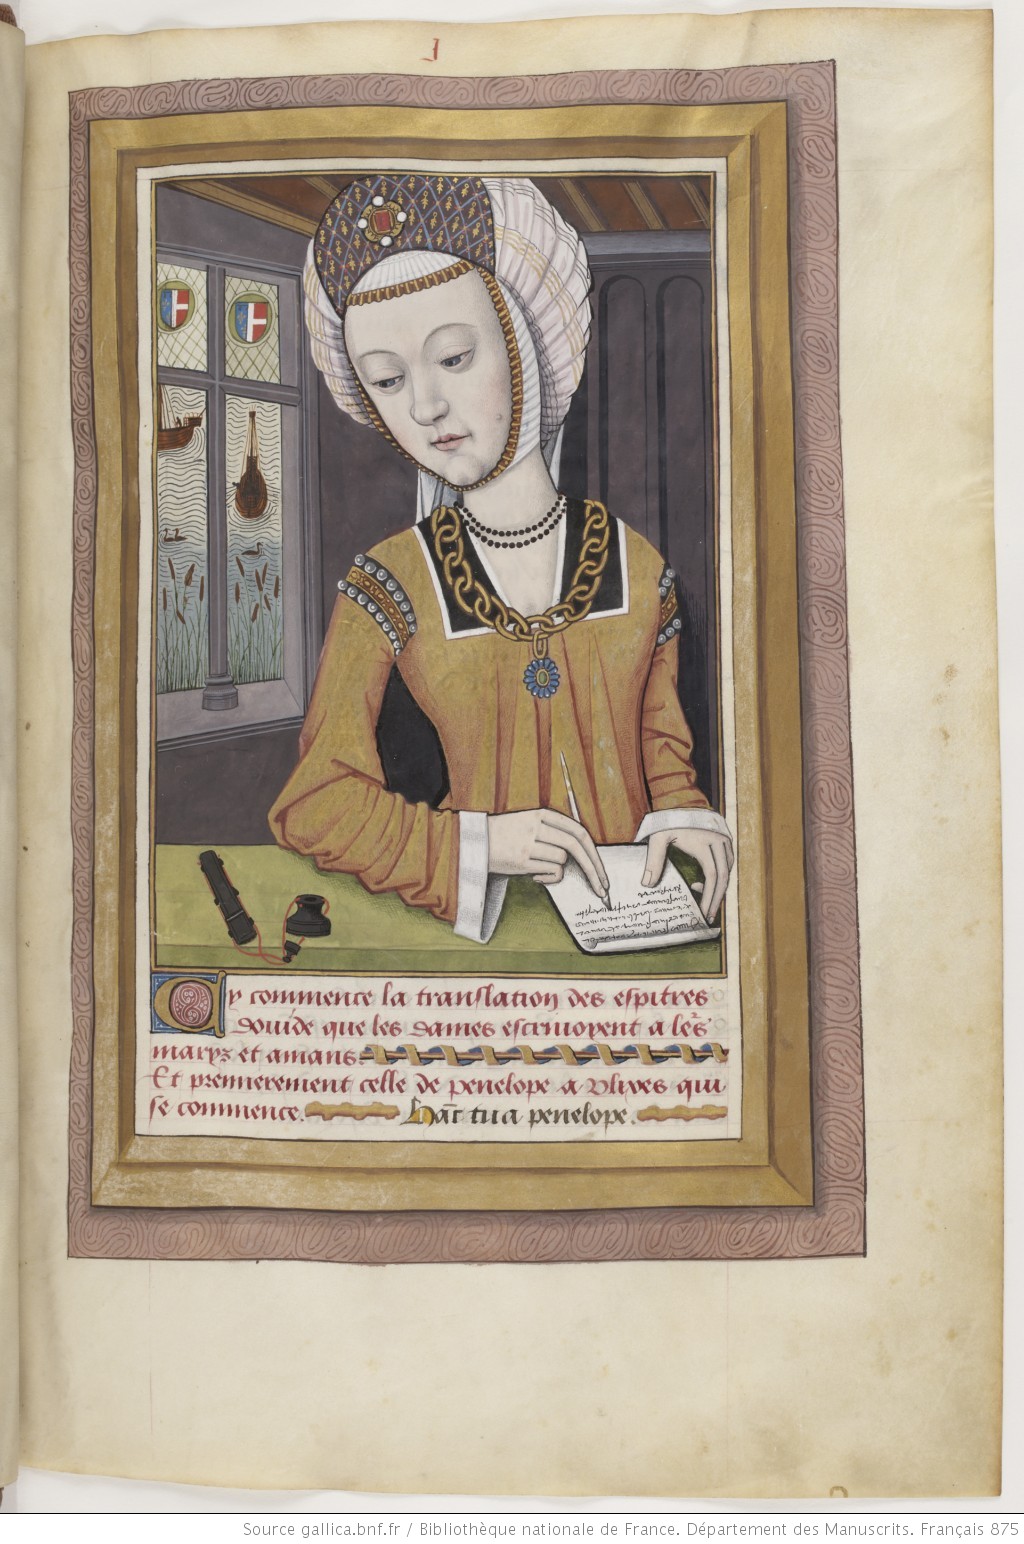 I
Cy commence la translation des espitres
douide que les dames escriuoyent a le͛s
marys et amans.
Et premierement celle de penelope a Ulixes qui
se commence. Hāc tua penelope.
Source gallica.bnf.fr / Bibliothèque nationale de France. Département des Manuscrits. Français 875